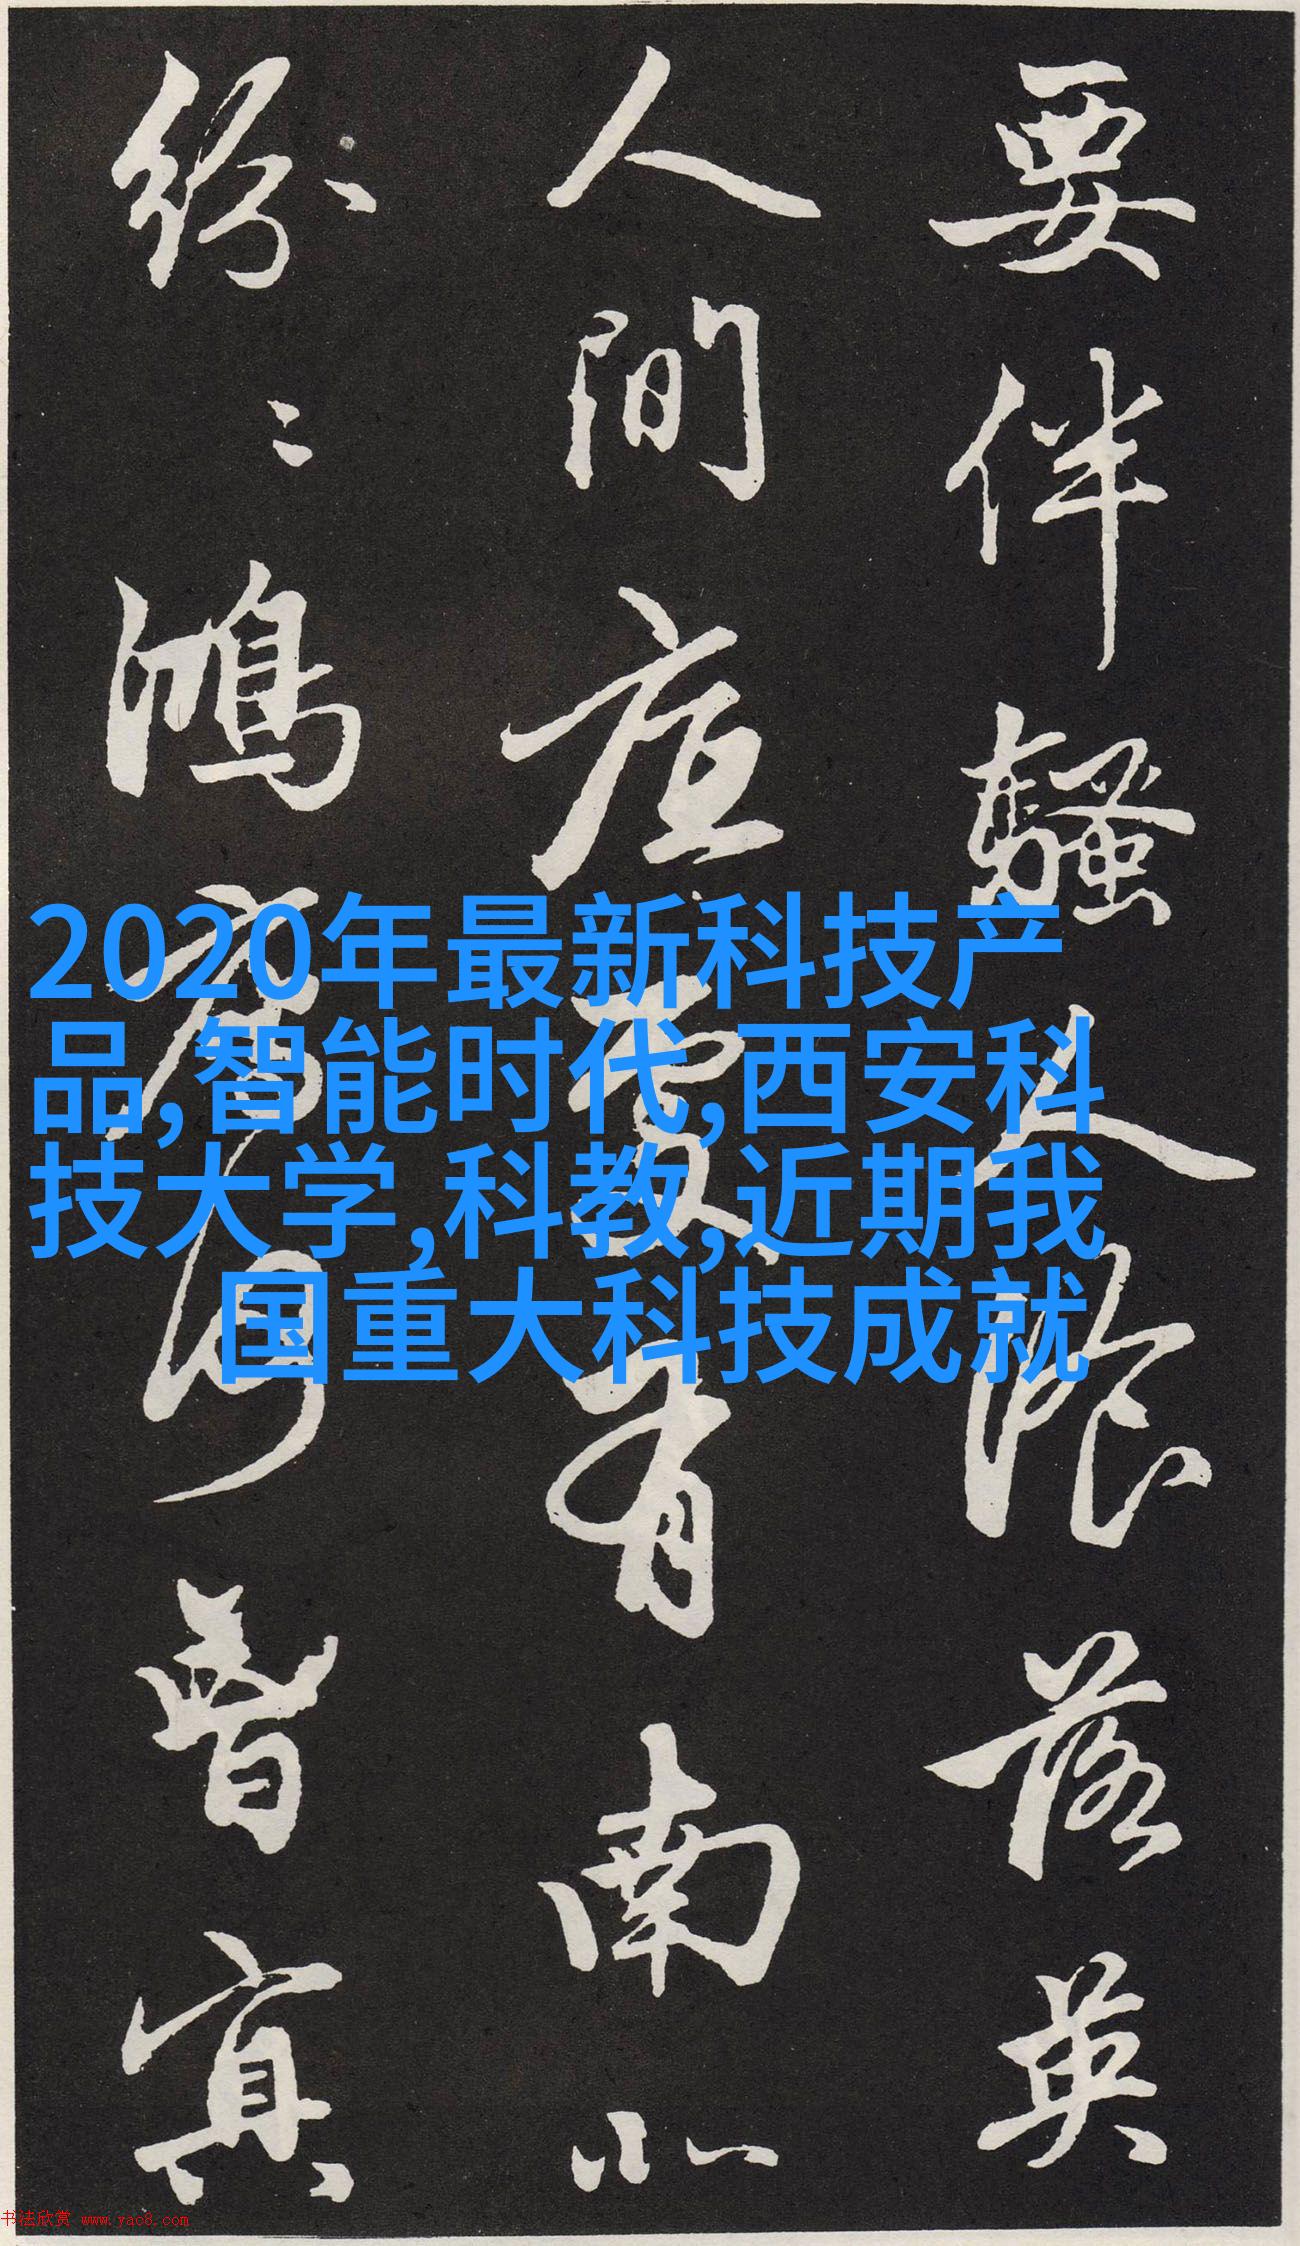 要伴騷人湌落英
人間底處有南北
紛〻鴻雁何曾冥
2020年最新科技产
品,智能时代,西安科
技大学,科教,近期我
国重大科技成就
书法欣赏 www.yac8.com